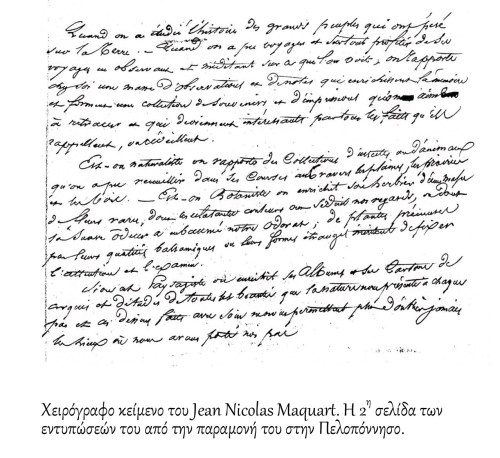 Quand on a étudié l'histoire des grands peuples qui ont péré
sur la Terre. — Quand on a pu voyager et surtout profiter de ses
voyages en observant et méditant sur ce que l'on voit, on rapporte
chez soi une masse d'observations et de notes qui enrichissent la mémoire
et forment une collection de souvenirs et d'impressions qu'on aime
à retracer et qui deviennent intéressants par tous les faits qu'ils
rappellent, ou réveillent.
Est-on naturaliste on rapporte des Collections d'insectes, ou d'animaux
qu'on a pu recueillir dans ses Courses au travers les plaines, les
et les Bois. — Est-on Botaniste on enrichit son herbier d'une masse
de fleurs rares, dont les éclatantes couleurs ont séduit nos regards, ou dont
la suave odeur a embaumé notre Odorat; de plantes précieuses
par leurs qualités balsamiques ou leurs formes étranges de fixer
l'attention et l'examen.
Si on est Paysagiste on enrichit ses Albums et ses Cartons de
croquis et d'études de toutes les beautés que la nature nous présente à chaque
pas et ces dessins faits avec soin nous permettent plus d'oublier jamais
les lieux où nous avons porté nos pas
Χειρόγραφο κείμενο του Jean Nicolas Maquart. Η 2η σελίδα των
εντυπώσεών του από την παραμονή του στην Πελοπόννησο.